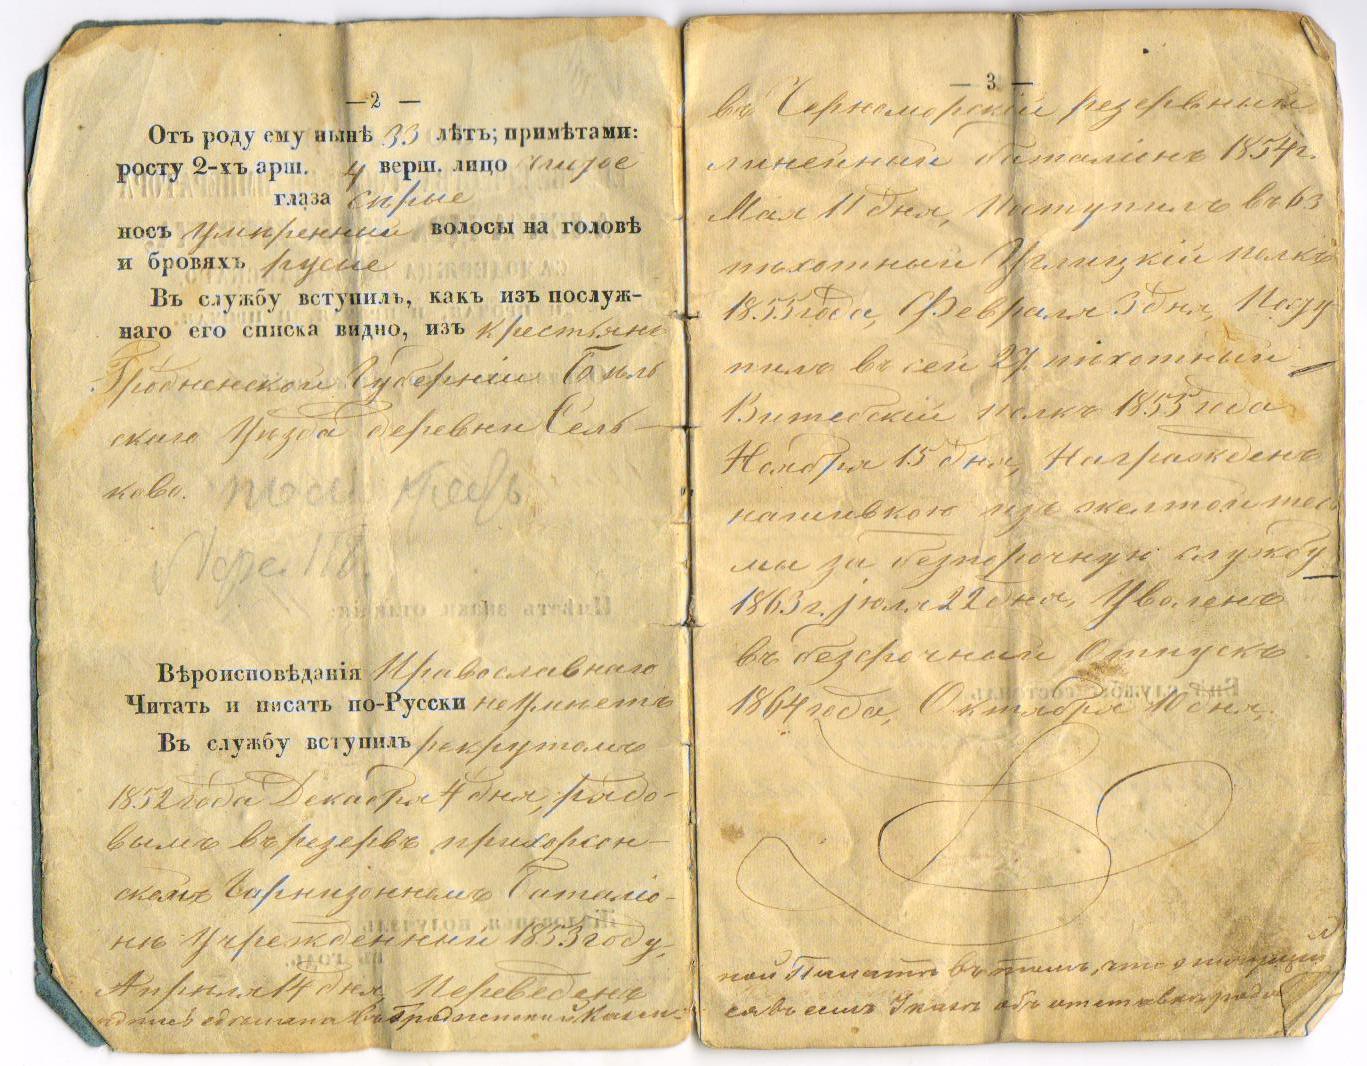 — 2 —
Отъ роду ему нынѣ 33 лѣтъ; примѣтами:
росту 2-хъ арш. 4 верш. лицо чистое
глаза сѣрые
носъ умѣренный волосы на головѣ
и бровяхъ русые
Въ службу вступилъ, какъ изъ послуж-
наго его списка видно, изъ крестьянъ
Гродненской Губерніи Бѣль
скаго Уѣзда деревни Сель-
ково.
Вѣроисповѣданія Православнаго
Читать и писать по-Русски не умѣетъ
Въ службу вступилъ рекрутомъ
1852 года Декабря 4 дня, рядо-
вымъ въ резервъ при
Гарнизонномъ Баталіо-
нѣ Учрежденный 1853 году,
Апрѣля 14 дня, Переведенъ
— 3 —
въ Черноморскій резервный
линейный баталіонъ 1854 г.
Мая 11 дня, Поступилъ въ 63
пѣхотный Углицкій полкъ
1855 года, Февраля 3 дня, Посту
пилъ въ сей 27 пѣхотный
Витебскій полкъ 1855 года
Ноября 15 дня, Награжденъ
нашивкою изъ желтой тесь
мы за безпорочную службу
1863 г. Іюля 22 дня, Уволенъ
въ безсрочный Отпускъ
1864 года, Октября 10 дня,
ной Палатѣ въ томъ, что
въ семъ Указѣ объ отставкѣ